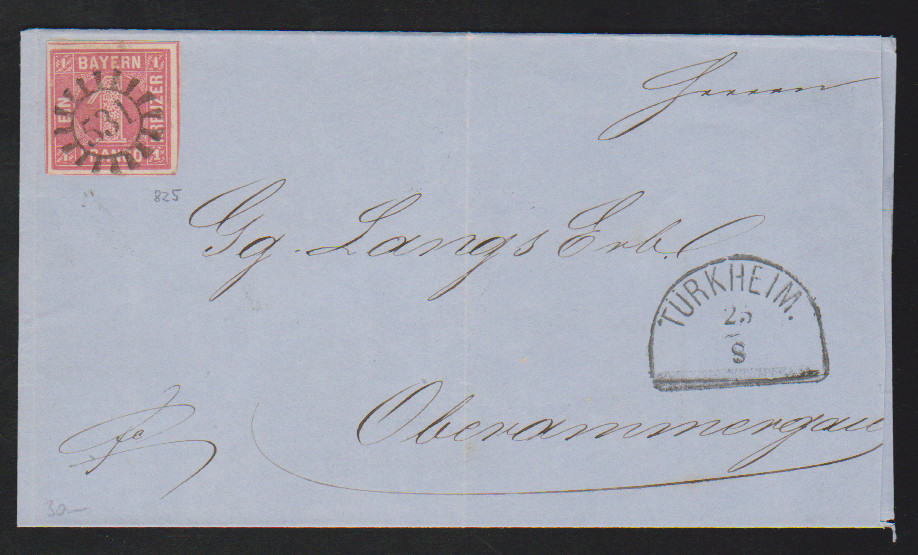 BAYERN
EIN
KREUZER
FRANCO
1
1
1
1
1
531
825
Herren
Gg. Langs Erb.
TÜRKHEIM.
25
8
Oberammergau
fc
30-